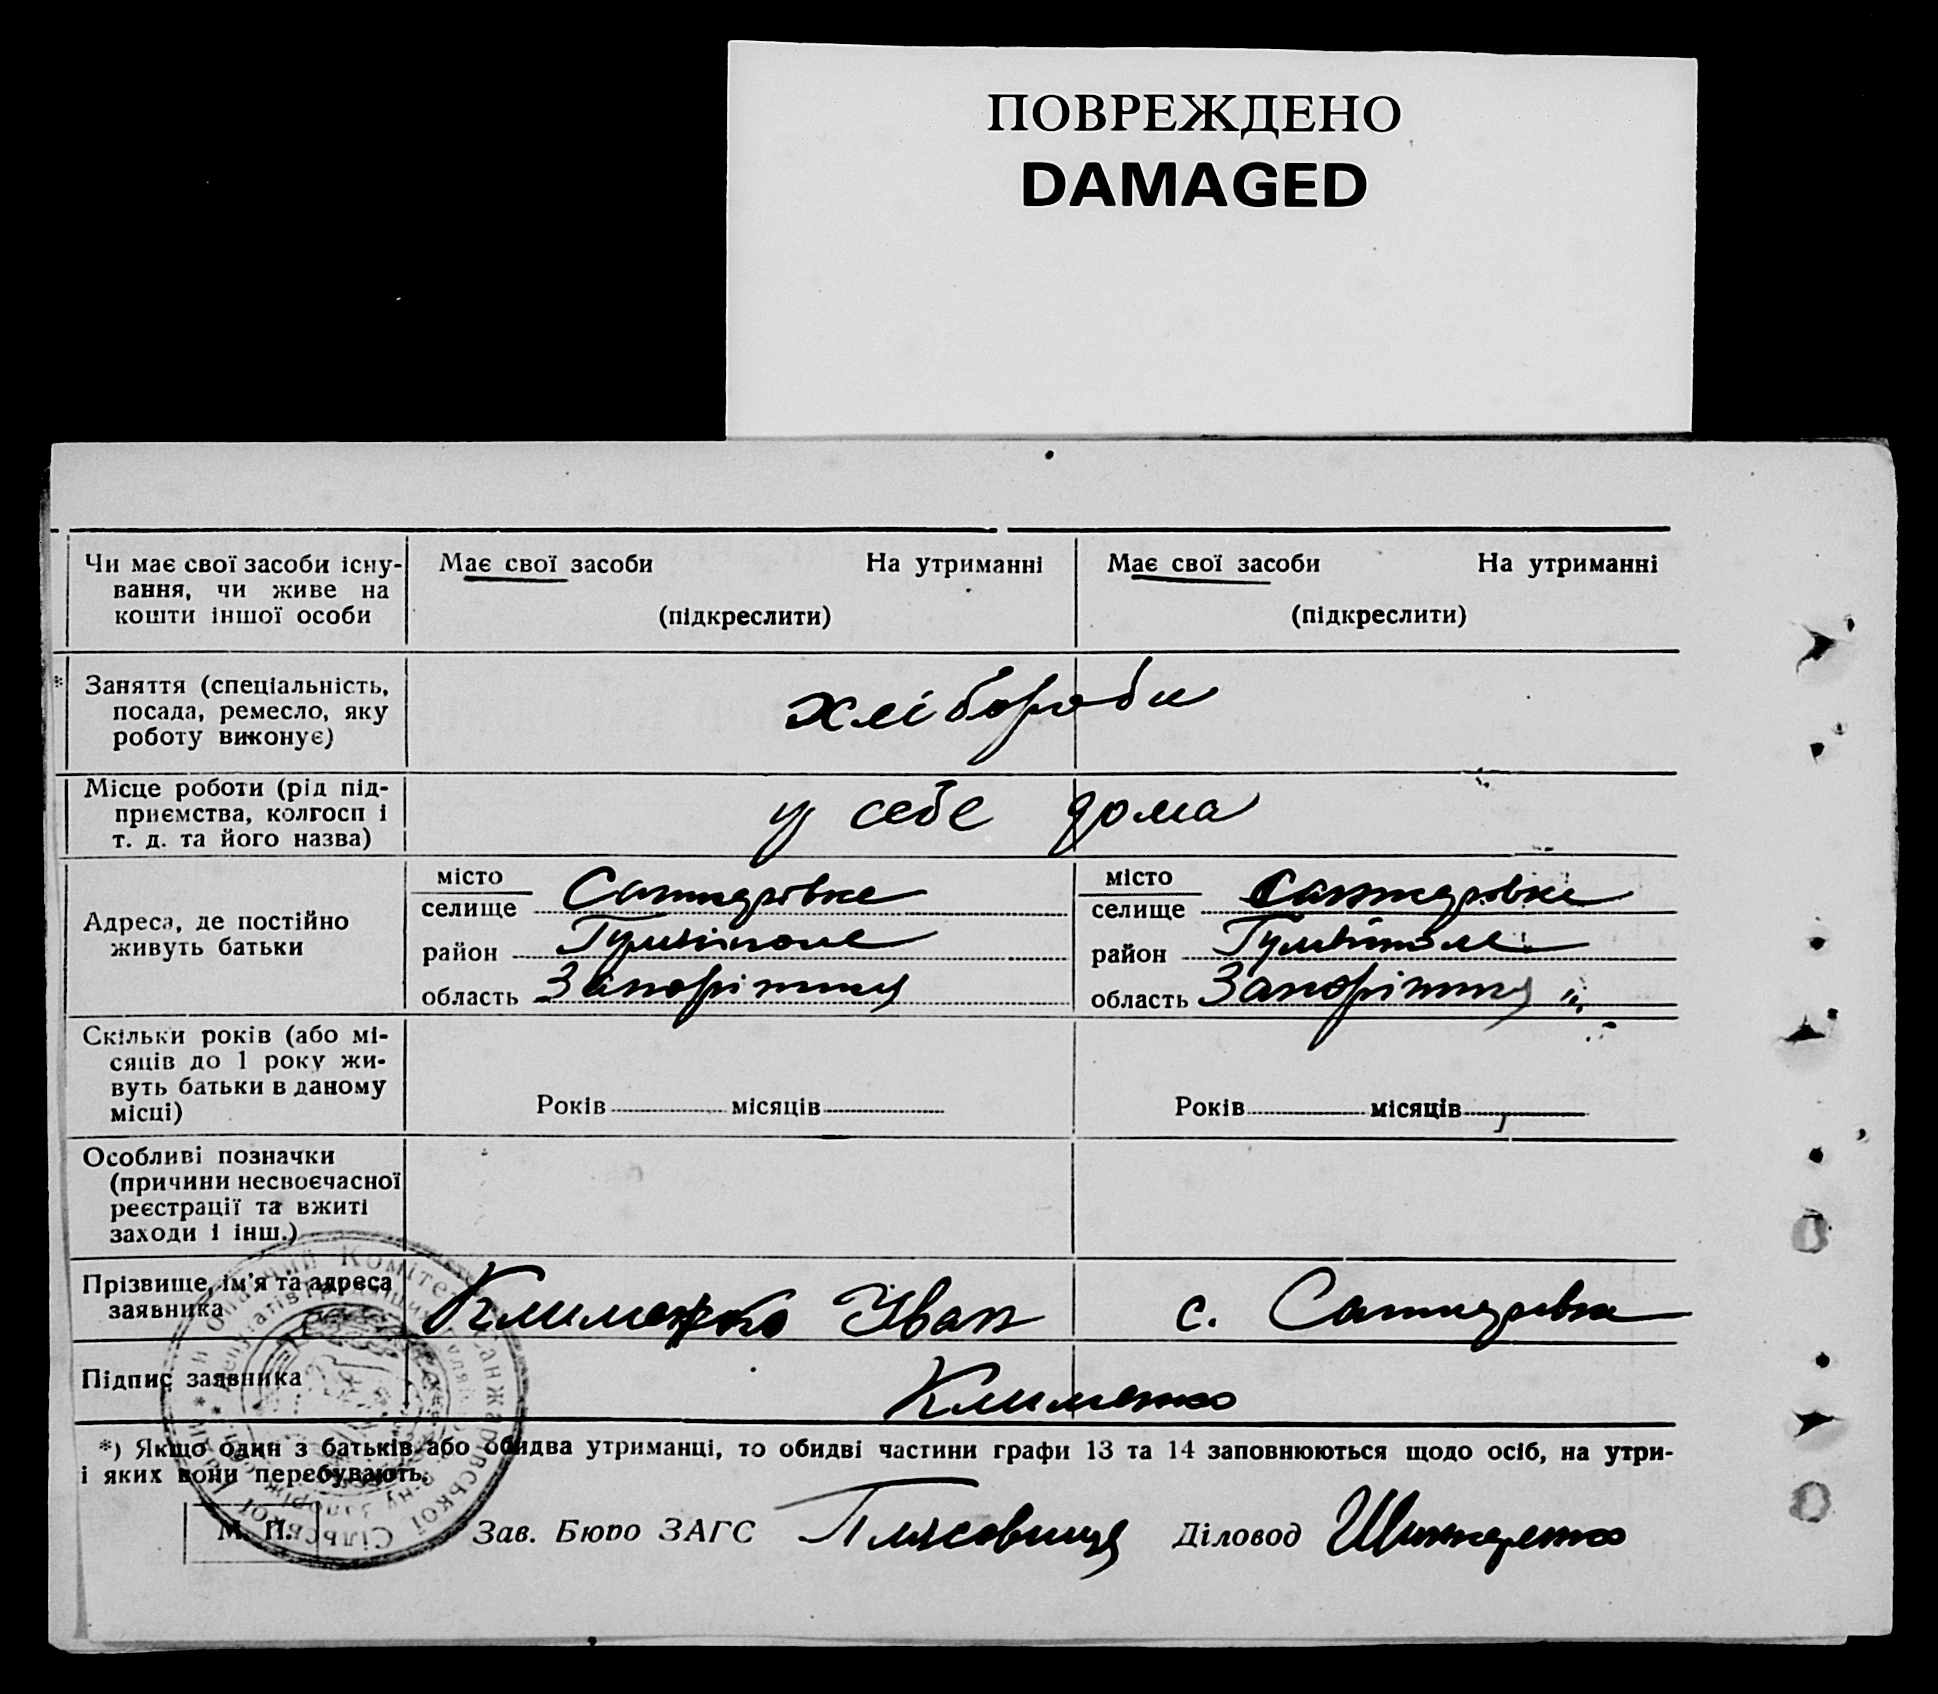 ПОВРЕЖДЕНО
DAMAGED
Чи має свої засоби існу-
вання, чи живе на
кошти іншої особи
Має свої засоби На утриманні
(підкреслити)
Має свої засоби На утриманні
(підкреслити)
* Заняття (спеціальність,
посада, ремесло, яку
роботу виконує)
хлібороби
Місце роботи (рід під-
приємства, колгосп і
т. д. та його назва)
у себе дома
Адреса, де постійно
живуть батьки
місто
селище Санжаровка
район Гуляйполе
область Запоріжжя
місто
селище Санжаровка
район Гуляйполе
область Запоріжжя
Скільки років (або мі-
сяців до 1 року жи-
вуть батьки в даному
місці)
Років місяців
Років місяців
Особливі позначки
(причини несвоєчасної
реєстрації та вжиті
заходи і інш.)
Прізвище, ім'я та адреса
заявника
Клименко Іван с. Санжаровка
Підпис заявника
Клименко
*) Якщо один з батьків або обидва утриманці, то обидві частини графи 13 та 14 заповнюються щодо осіб, на утри-
і яких вони перебувають.
М. П.
Зав. Бюро ЗАГС Діловод Шинкаренко
Комітет Санжаровської Сільської Ради